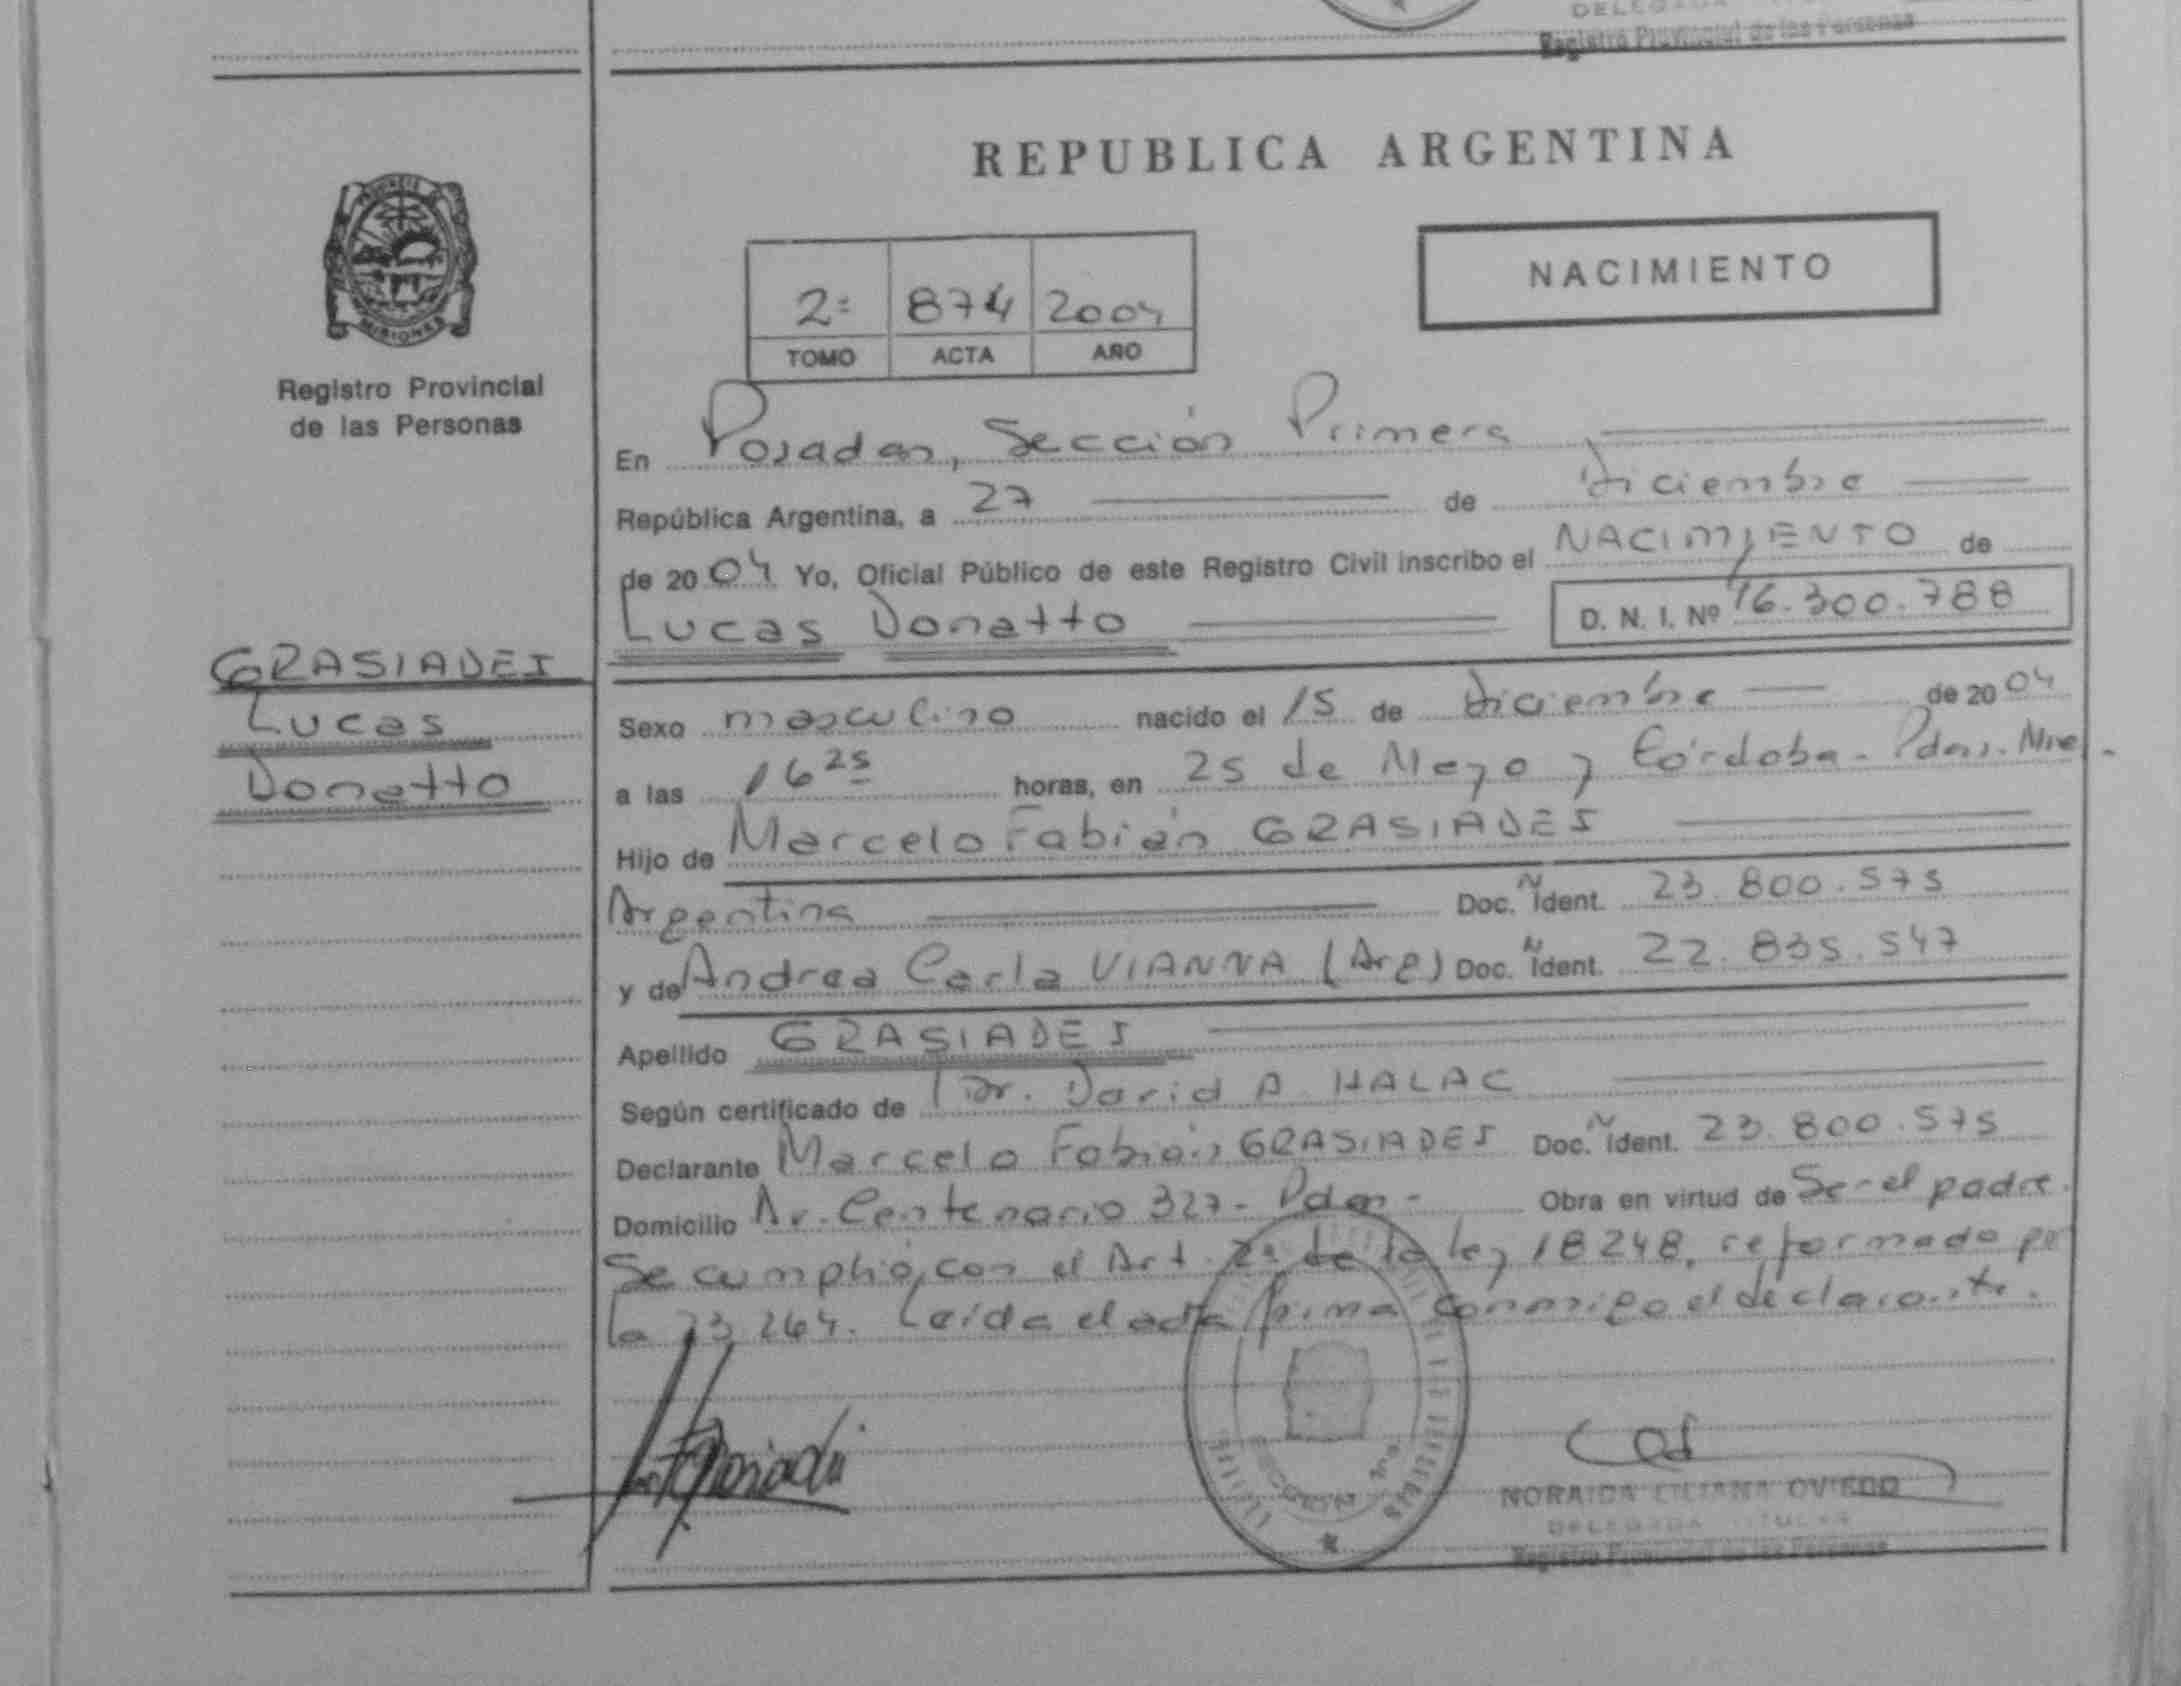 Registro Provincial de las Personas
REPUBLICA ARGENTINA
MISIONES
Registro Provincial
de las Personas
2º 874 2004
TOMO ACTA AÑO
NACIMIENTO
En Posadas, Sección Primera
República Argentina, a 27 de Diciembre
de 2004 Yo, Oficial Público de este Registro Civil inscribo el NACIMIENTO de
Lucas Donatto D. N. I. Nº 46.300.788
GRASIADEI
Lucas
Donatto
Sexo masculino nacido el 15 de Diciembre de 2004
a las 16 25 horas, en 25 de Mayo y Córdoba - Pdas. Mnes.
Hijo de Marcelo Fabián GRASIADEI
Argentina Doc. N. Ident. 23.800.575
y de Andrea Carla VIANNA (Arg) Doc. N. Ident. 22.835.547
Apellido GRASIADEI
Según certificado de Dr. David A. HALAC
Declarante Marcelo Fabián GRASIADEI Doc. N. Ident. 23.800.575
Domicilio Av. Centenario 327 - Pdas - Obra en virtud de Ser el padre.
Se cumplió con el Art. 2º de la ley 18248, reformado por
la 23264. Leída el acta firma conmigo el declarante.
NORAIDA LILIANA OVIEDO
DELEGADA TITULAR
Registro Provincial de las Personas